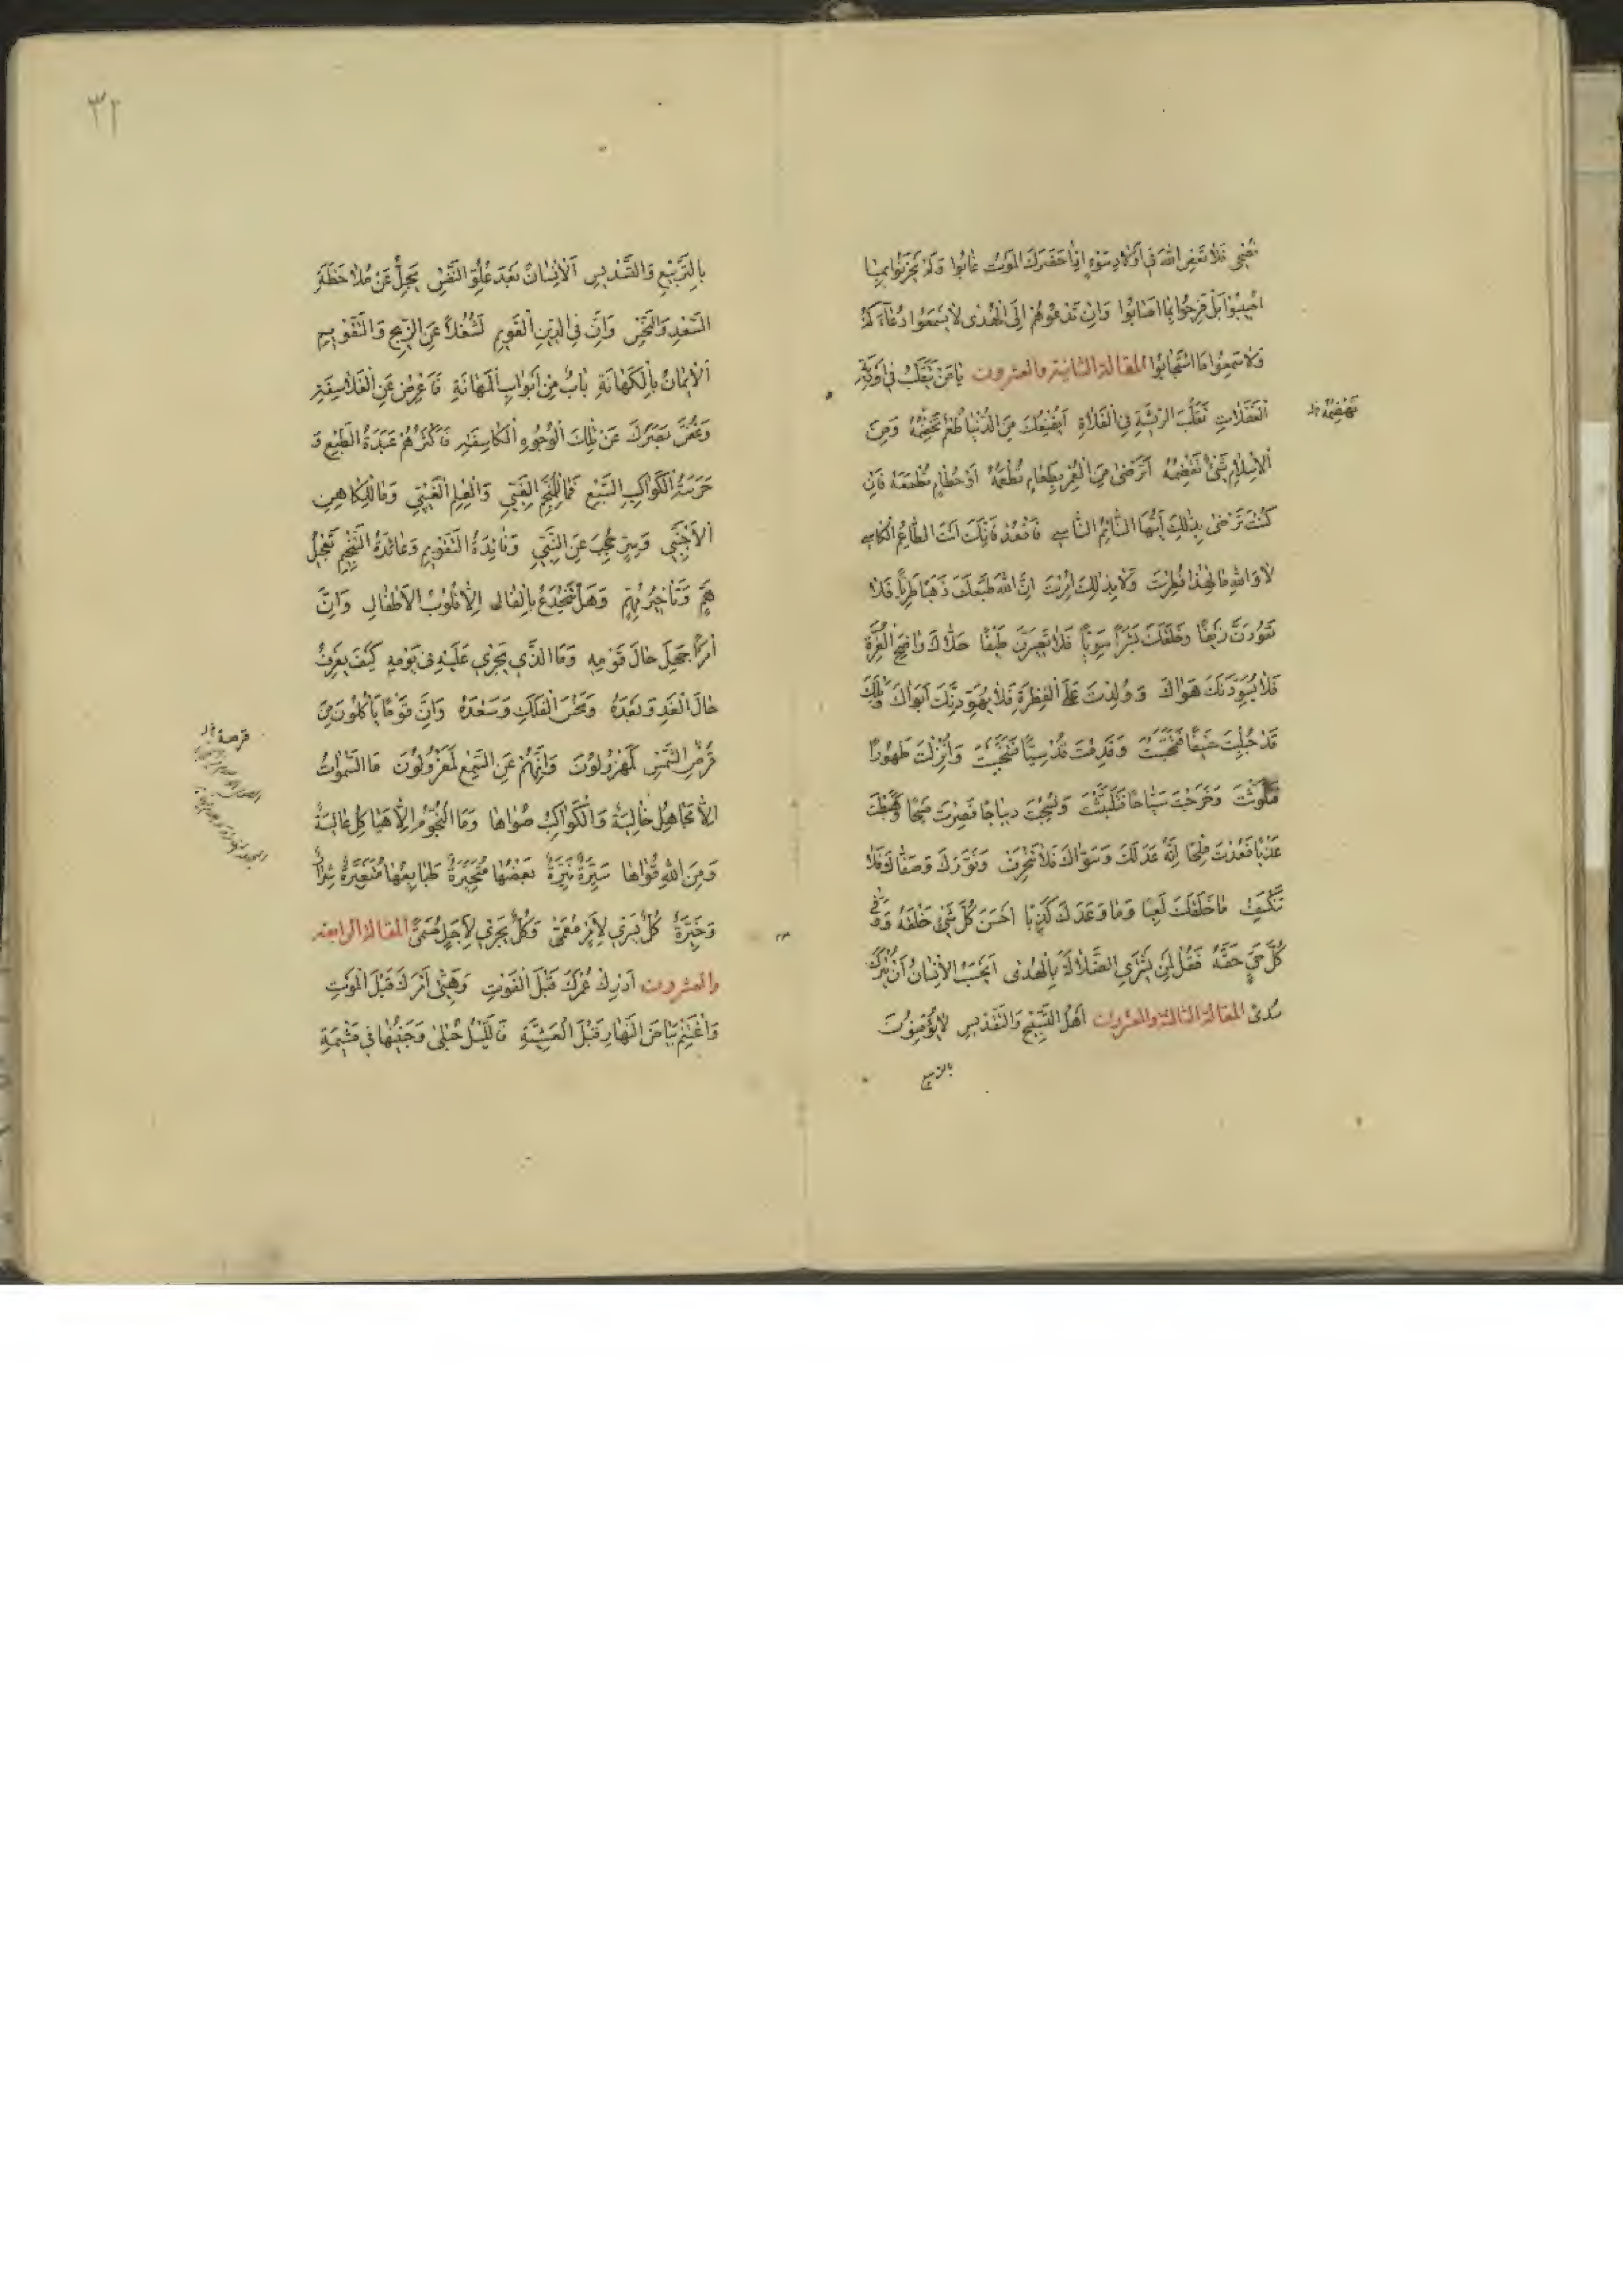 تُنْجِي فَلَا تَعْصِ اللّٰهَ فِي أَوْلَادِ سَوْءٍ إِذَا حَضَرَكَ الْمَوْتُ غَابُوا وَلَمْ يَحْزَنُوا بِمَا
أُصِيبُوا بَلْ فَرِحُوا بِمَا أَصَابُوا وَإِنْ تَدْعُوهُمْ إِلَى الْهُدٰى لَا يَسْمَعُوا دُعَاءَكُمْ
وَلَوْ سَمِعُوا مَا اسْتَجَابُوا المقالة الثانية والعشرون يَا مَنْ يَتَقَلَّبُ فِي أَوْدِيَةِ
الْغَفَلَاتِ تَقَلُّبَ الرِّيشَةِ فِي الْفَلَاةِ أَيُقْنِعُكَ مِنَ الدُّنْيَا طُعْمٌ تَخْضِمُهُ وَمِنَ
الْإِسْلَامِ شَيْءٌ تَقْضِمُهُ أَتَرْضٰى مِنَ الْعُمْرِ بِطَعَامٍ تُطْعَمُهُ أَوْ حُطَامٍ تُطْمَعُهُ فَإِنْ
كُنْتَ تَرْضٰى بِذٰلِكَ أَيُّهَا النَّائِمُ النَّاسِي فَاقْعُدْ فَإِنَّكَ أَنْتَ الطَّاعِمُ الْكَاسِي
لَا وَاللّٰهِ مَا لِهٰذَا فُطِرْتَ وَلَا بِذٰلِكَ أُمِرْتَ إِنَّ اللّٰهَ طَبَعَكَ ذَهَبًا طَرِيًّا فَلَا
تَعُودَنَّ زَيْفًا وَخَلَقَكَ بَشَرًا سَوِيًّا فَلَا تَصِيرَنَّ طَيْفًا حَلَّاكَ وَاضِحَ الْغُرَّةِ
فَلَا يُسَوِّدَنَّكَ هَوَاكَ وَوُلِدْتَ عَلَى الْفِطْرَةِ فَلَا يُهَوِّدَنَّكَ أَبَوَاكَ وَيْلَكَ
قَدْ جُلِبْتَ وَقَدِمْتَ قُدْسِيًّا وَأُنْزِلْتَ طَهُورًا
فَتَلَوَّثْتَ وَخَرَجْتَ وَنُسِجْتَ دِيبَاجًا فَصِرْتَ مِسْحًا
عَذْبًا فَعُدْتَ مِلْحًا إِنَّهُ عَدَلَكَ وَسَوَّاكَ فَلَا تَنْحَرِفْ وَنَوَّرَكَ وَصَفَّاكَ فَلَا
تَنْكَسِفْ مَا خَلَقَكَ لَعِبًا وَمَا وَعَدَكَ كَذِبًا أَحْسَنَ كُلَّ شَيْءٍ خَلَقَهُ وَوَفّٰى
كُلَّ حَيٍّ حَقَّهُ فَقُلْ لِمَنْ يَشْتَرِي الضَّلَالَةَ بِالْهُدٰى أَيَحْسَبُ الْإِنْسَانُ أَنْ يُتْرَكَ
سُدًى المقالة الثالثة والعشرون أَهْلُ التَّسْبِيحِ وَالتَّقْدِيسِ لَا يُؤْمِنُونَ
بالتربيع
تهضمه
٣٢
بِالتَّرْبِيعِ وَالتَّسْدِيسِ الْإِنْسَانُ بَعْدَ عُلُوِّ النَّفْسِ يَجِلُّ عَنْ مُلَاحَظَةِ
السَّعْدِ وَالنَّحْسِ وَإِنَّ فِي الدِّينِ الْقَوِيمِ لَشُغْلًا عَنِ الزِّيجِ وَالتَّقْوِيمِ
الْإِيمَانُ بِالْكَهَانَةِ بَابٌ مِنْ أَبْوَابِ الْمَهَانَةِ فَأَعْرِضْ عَنِ الْفَلَاسِفَةِ
وَغُضَّ بَصَرَكَ عَنْ تِلْكَ الْوُجُوهِ الْكَاسِفَةِ فَأَكْثَرُهُمْ عَبَدَةُ الطَّبْعِ وَ
حَرَسَةُ الْكَوَاكِبِ السَّبْعِ فَمَا لِلْمُنَجِّمِ الْغَبِيِّ وَالْعِلْمِ الْغَيْبِيِّ وَمَا لِلْكَاهِنِ
الْأَجْنَبِيِّ وَسِرٍّ حُجِبَ عَنِ النَّبِيِّ وَفَائِدَةُ التَّقْوِيمِ وَعَائِدَةُ التَّنْجِيمِ تَعْجِيلُ
هَمٍّ وَتَأْخِيرُ مُهِمٍّ وَهَلْ يَنْخَدِعُ بِالْفَالِ إِلَّا قُلُوبُ الْأَطْفَالِ وَإِنَّ
امْرَأً جَهِلَ حَالَ قَوْمِهِ وَمَا الَّذِي يَجْرِي عَلَيْهِ فِي يَوْمِهِ كَيْفَ يَعْرِفُ
حَالَ الْغَدِ وَبَعْدَهُ وَنَحْسَ الْفَلَكِ وَسَعْدَهُ وَإِنَّ قَوْمًا يَأْكُلُونَ مِنْ
قُرْصِ الشَّمْسِ لَمَهْزُولُونَ وَإِنَّهُمْ عَنِ السَّمْعِ لَمَعْزُولُونَ مَا السَّمٰوَاتُ
إِلَّا مَجَاهِيلُ خَالِيَةٌ وَالْكَوَاكِبُ صُوَاهَا وَمَا النُّجُومُ إِلَّا هَيَاكِلُ عَالِيَةٌ
وَمِنَ اللّٰهِ قُوَاهَا سَيَّرَهُ نَيِّرَةٌ بَعْضُهَا مُتَحَيِّرَةٌ طَبَايِعُهَا مُتَغَيِّرَةٌ
وَخَيِّرَةٌ كُلٌّ يَسْرِي لِأَمْرٍ مُعَمًّى وَكُلٌّ يَجْرِي لِأَجَلٍ مُسَمًّى المقالة الرابعة
والعشرون أَدْرِكْ عُمْرَكَ قَبْلَ الْفَوْتِ وَهَيِّئْ أَمْرَكَ قَبْلَ الْمَوْتِ
وَاغْتَنِمْ بَيَاضَ النَّهَارِ قَبْلَ الْعَشِيَّةِ فَاللَّيْلُ حُبْلٰى وَجَنِينُهَا فِي مَشِيمَةِ
قرصة